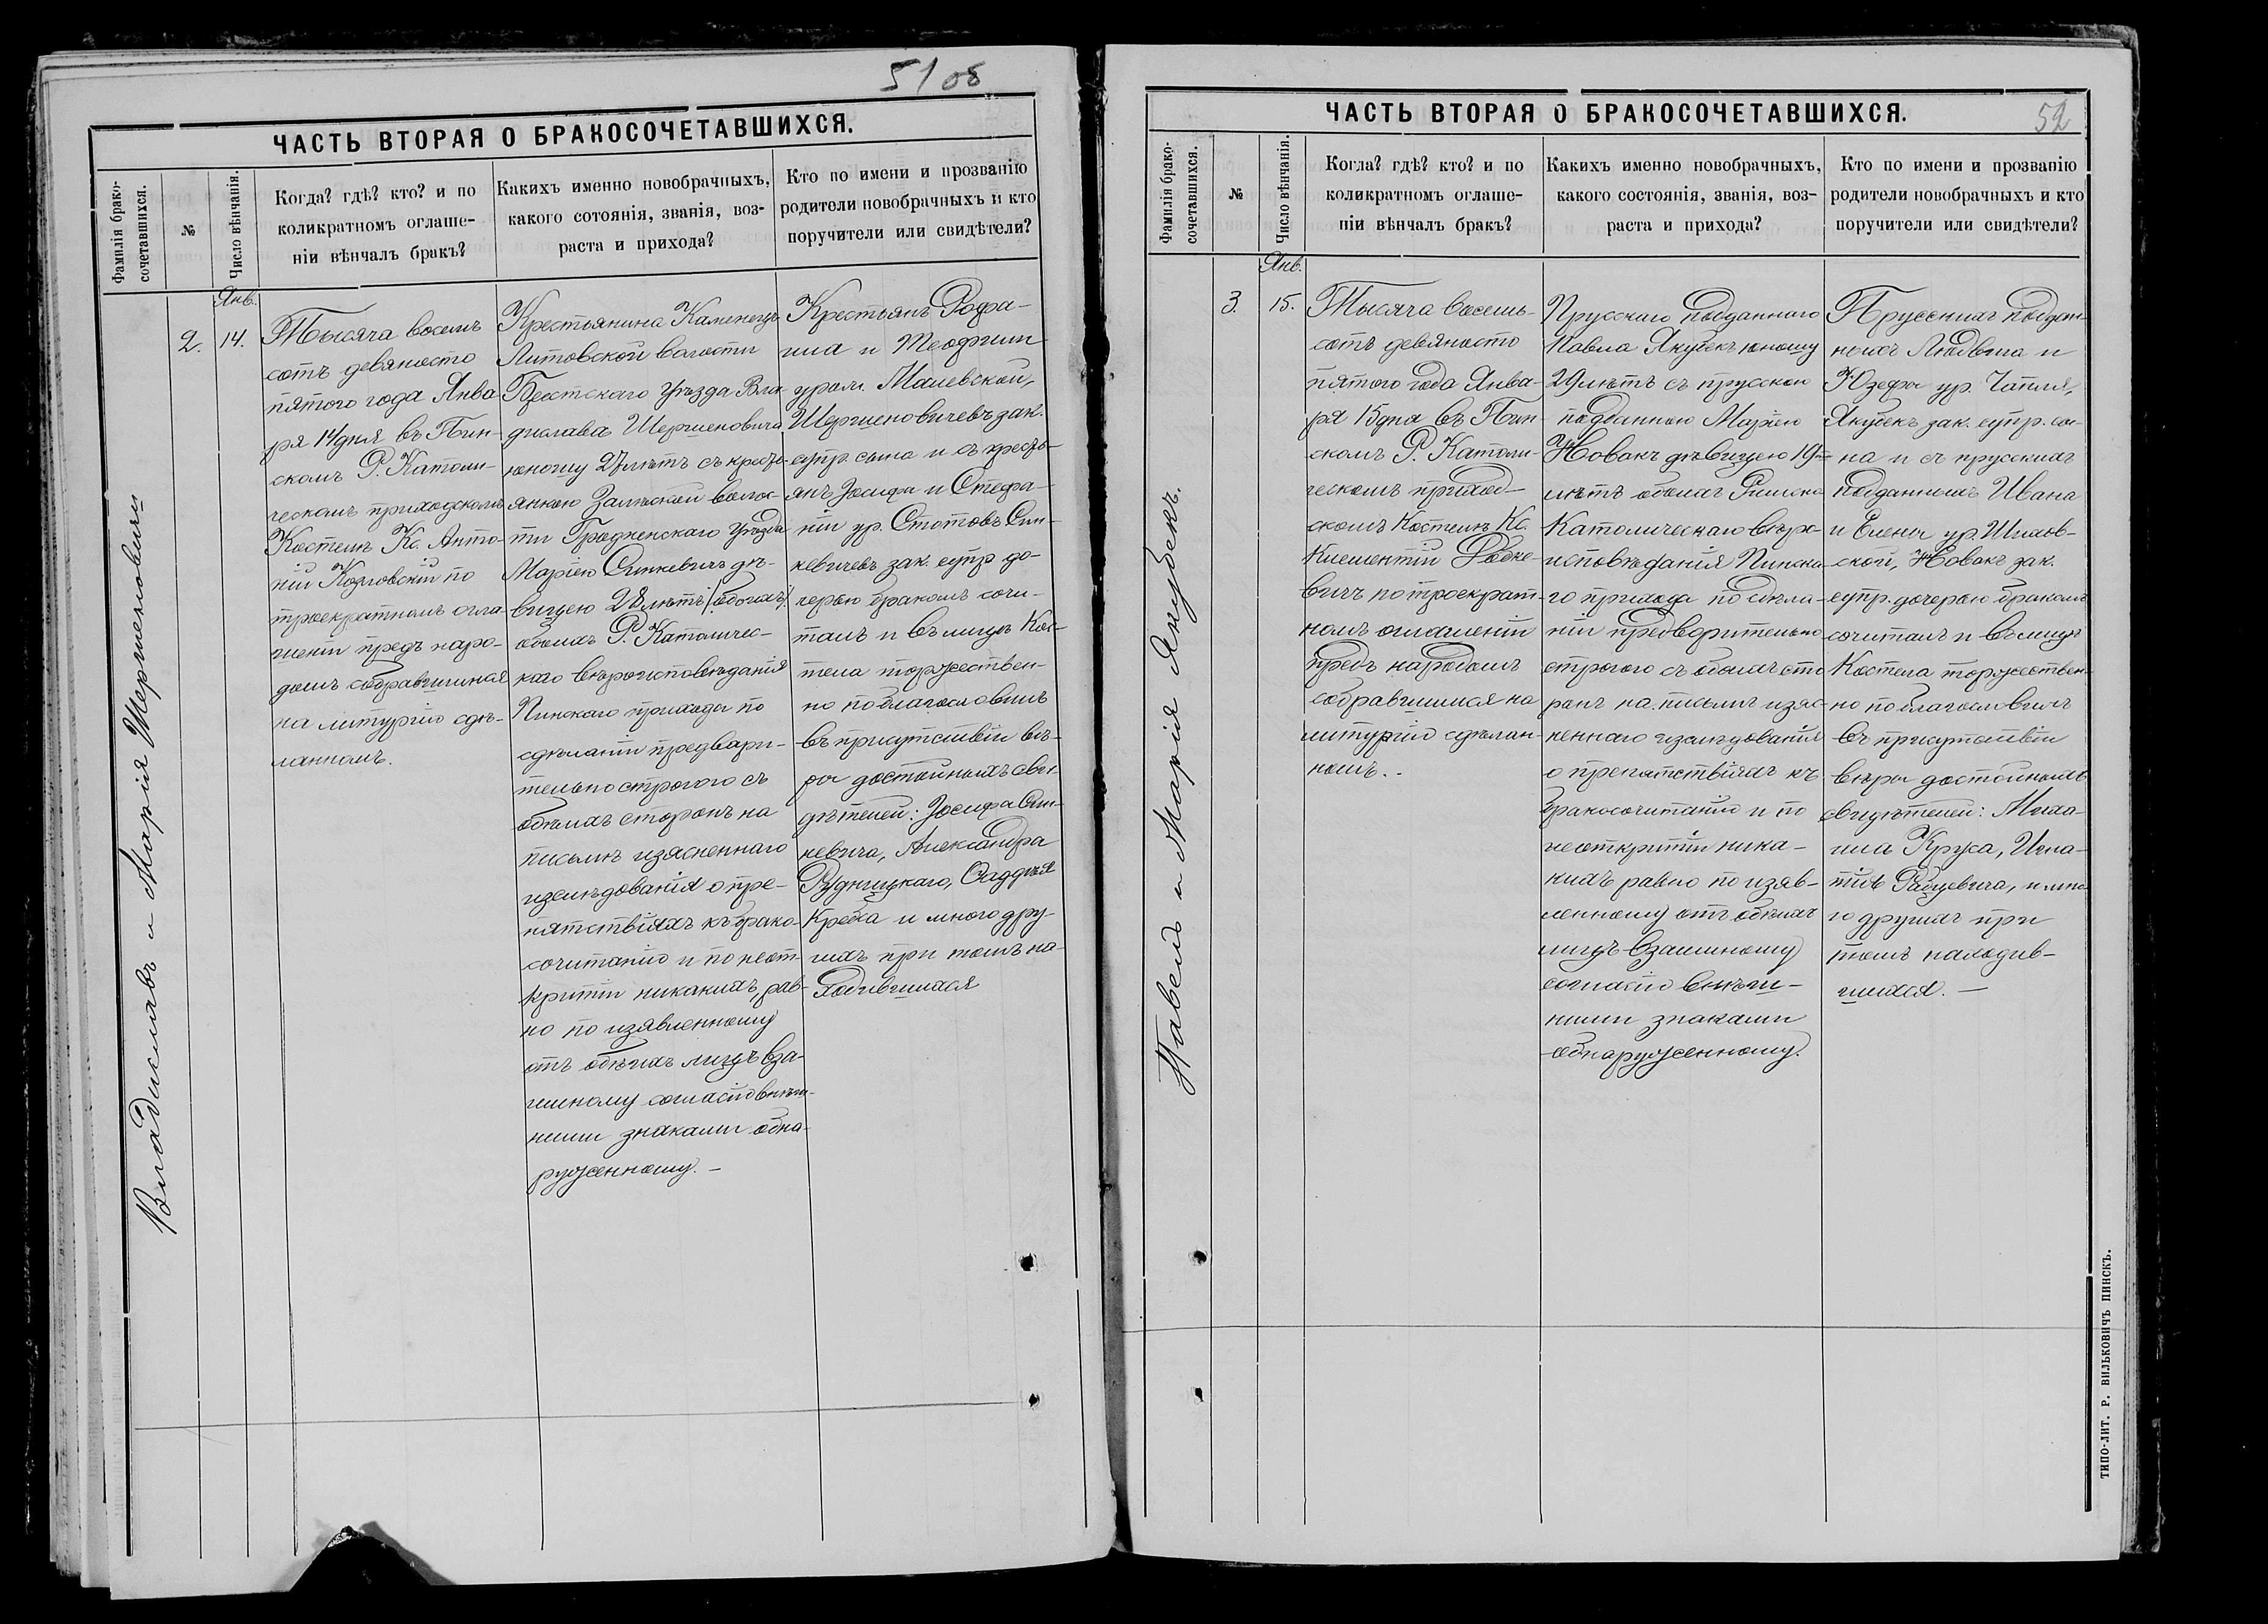 51 об
ЧАСТЬ ВТОРАЯ О БРАКОСОЧЕТАВШИХСЯ.
Фамилія брако-
сочетавшихся.
№
Число вѣнчанія.
Когда? гдѣ? кто? и по
коликратномъ оглаше-
ніи вѣнчалъ бракъ?
Какихъ именно новобрачныхъ,
какого сотоянія, званія, воз-
раста и прихода?
Кто по имени и прозванію
родители новобрачныхъ и кто
поручители или свидѣтели?
Владиславъ и Марія Шершеновичи
2.
Янв.
14.
Тысяча восемъ
сотъ девяносто
пятого года Янва
ря 14 дня въ Пин-
скомъ Р. Католи-
ческомъ приходскомъ
Костелѣ Кс. Анто-
ній Козловскій по
троекратномъ огла
шеніи предъ наро-
домъ собравшимся
на литургію сдѣ-
ланномъ.
Крестьянина Каменецъ
Литовской волости
Брестскаго Уѣзда Вла
дислава Шершеновича
юношу 27 лѣтъ съ кресть-
янкою Залѣской волос-
ти Гродненскаго Уѣзда
Маріею Синкевичъ дѣ-
вицею 28 лѣтъ (обоихъ)
обоихъ Р. Католичес-
каго вѣроисповѣданія
Пинскаго прихода по
сдѣланіи предвари-
тельно строгого съ
обѣихъ сторонъ на
письмѣ изясненнаго
изслѣдованія о пре-
пятствіяхъ къ брако-
сочитанію и по неот-
критіи никакихъ, рав-
но по изявленному
отъ обѣихъ лицъ вза-
имному согласію внѣш-
ними знаками обна-
руженному. -
Крестьянъ Рофа-
ила и Теофили
урож. Малевской,
Шершеновичевъ зак.
супр. сына и съ кресть-
янъ Іосифа и Стефа-
ніи ур. Стотовъ Син-
кевичевъ зак. супр. до-
черью бракомъ сочи-
талъ и въ лицѣ Кос-
тела торжествен-
но поблагословилъ
въ присутствіи вѣ-
ры достойныхъ сви-
дѣтелей: Іосифа Син-
кевича, Александра
Рудницкаго, Фаддѣя
Кребса и много дру-
гихъ при томъ на-
ходившихся
52
ЧАСТЬ ВТОРАЯ О БРАКОСОЧЕТАВШИХСЯ.
Фамилія брако-
сочетавшихся.
№
Число вѣнчанія.
Когла? гдѣ? кто? и по
коликратномъ оглаше-
ніи вѣнчалъ бракъ?
Какихъ именно новобрачныхъ,
какого состоянія, званія, воз-
раста и прихода?
Кто по имени и прозванію
родители новобрачныхъ и кто
поручители или свидѣтели?
Павелъ и Марія Якубекъ.
3.
Янв.
15.
Тысяча восемь-
сотъ девяносто
пятого года Янва-
ря 15 дня въ Пин-
скомъ Р. Католи-
ческомъ приход-
скомъ Костелѣ Кс.
Климентій
по троекрат-
номъ оглашеніи
предъ народомъ
собравшимся на
литургію сдѣлан-
номъ..
Прусскаго подданного
Павла Якубекъ юношу
29 лѣтъ съ прусскою
подданною Маріею
Новакъ дѣвицею 19-
лѣтъ обоихъ Римско
Католическаго вѣро-
исповѣданія Пинска-
го прихода по сдѣла-
ніи предворительно
строгого съ обоихъ сто
ронъ на письмѣ изяс-
неннаго изслѣдованія
о препятствіяхъ къ
бракосочитанію и по
неоткритіи ника-
кихъ равно по изяв-
ленному отъ обѣихъ
лицъ взаимному
согласію внѣш-
ними знаками
обнаруженному.
Прусскихъ поддан-
ныхъ Людвига и
Юзефы ур. Чапля,
Якубекъ зак. супр. сы-
на и съ прусскихъ
подданныхъ Ивана
и Елены ур. Шилов-
ской, Новакъ зак.
супр. дочерью бракомъ
сочиталъ и въ лицѣ
Костела торжествен
но поблагословилъ
въ присутствіи
вѣры достойныхъ
свидѣтелей: Миха-
ила Круса, Игна-
тія Рабцевича, и мно
го другихъ при
томъ находив-
шихся. —
ТИПО-ЛИТ. Р. ВИЛЬКОВИЧЪ ПИНСКЪ.